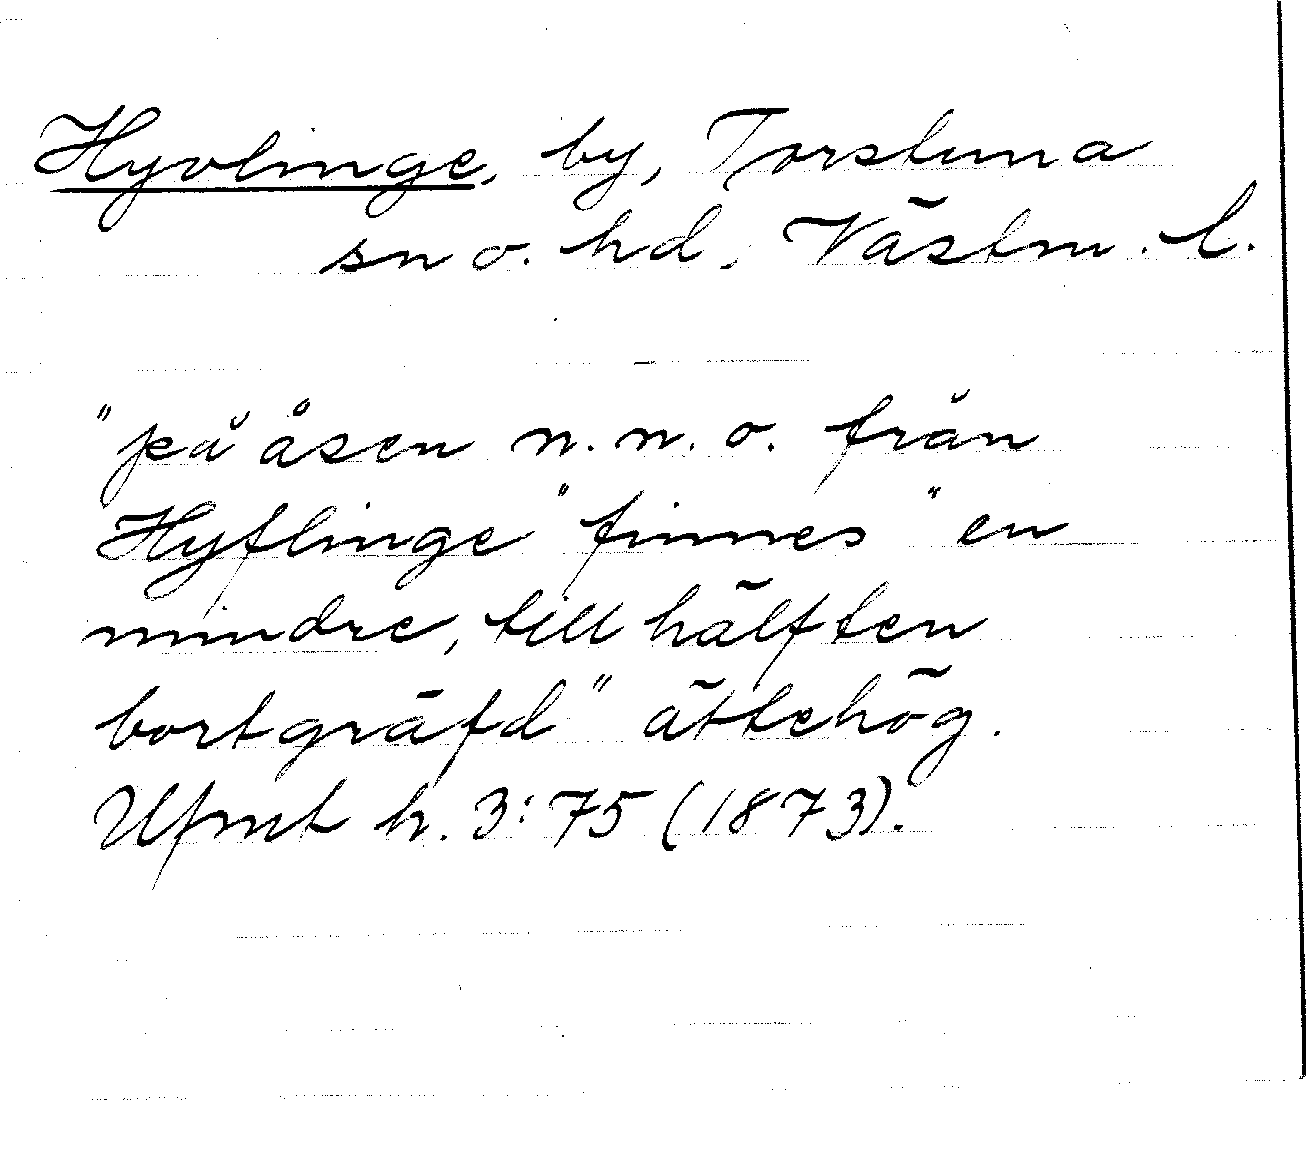 Hyvlinge, by, Torstuna
sn o. hd, Västm. l.
"på åsen n.n.o. från
Hyflinge" finnes "en
mindre, till hälften
bortgräfd" ättehög.
Ufmt h. 3:75 (1873).